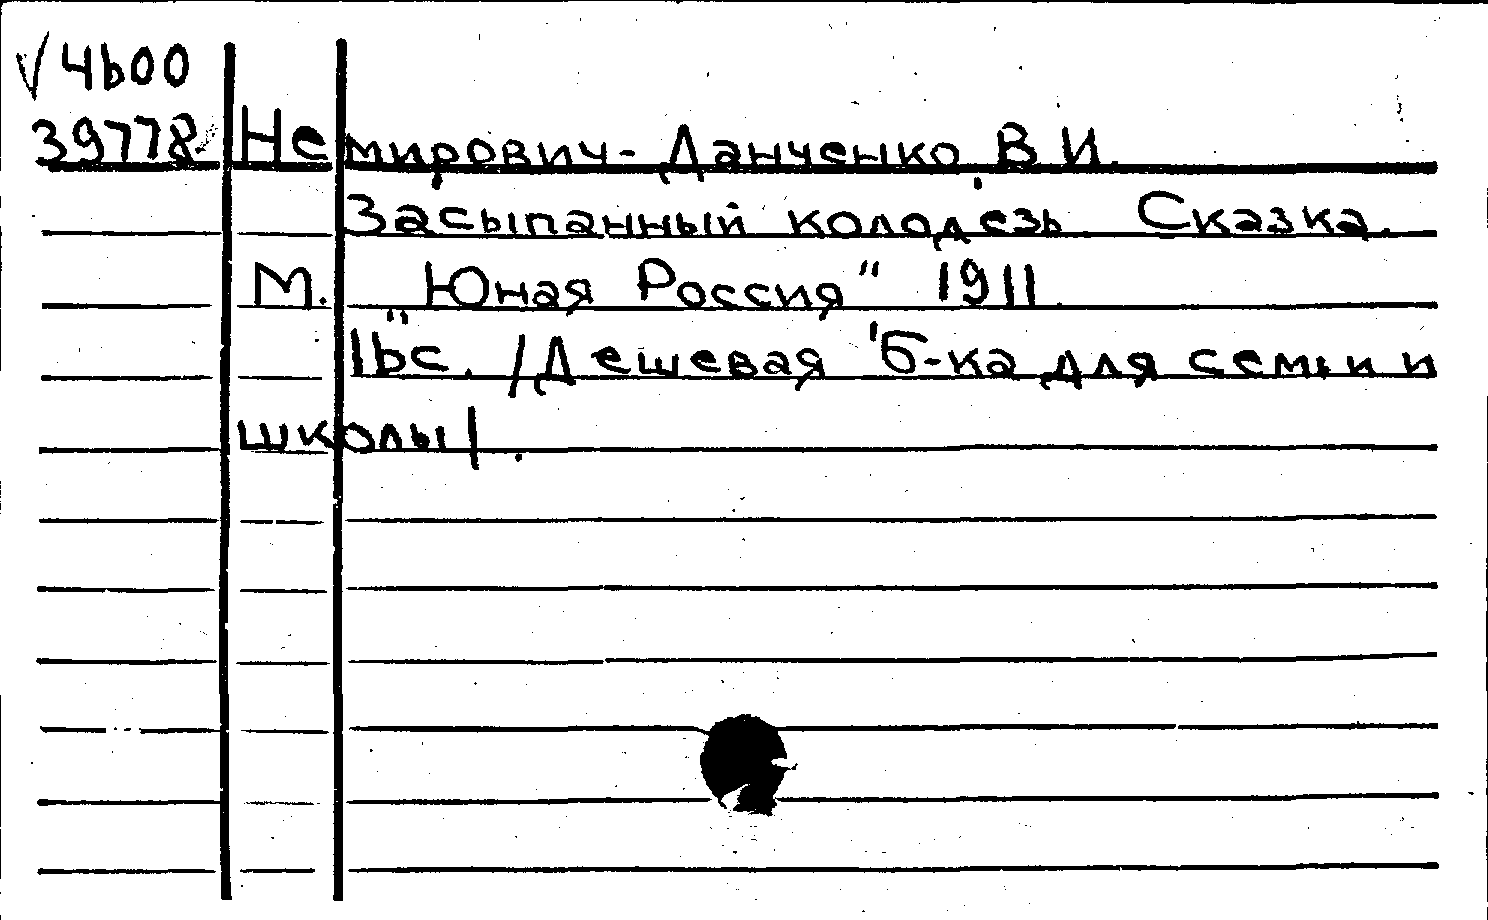 √4600
39778 Немирович-Данченко В.И.
Засыпанный колодезь. Сказка.
М. „Юная Россия" 1911.
16с. /Дешевая б-ка для семьи и
школы/.